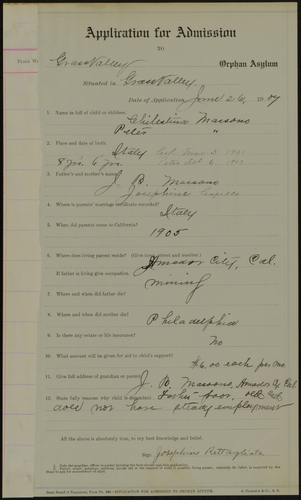 Application for Admission
TO
Grass Valley Orphan Asylum
Situated in Grass Valley
Date of Application, June 26, 1909
1. Name in full of child or children, Chilestina Massono
Peter "
2. Place and date of birth, Italy
8 yrs. 6 yrs.
3. Father's and mother's name, J. B. Massono
Josephine
4. Where is parents' marriage certificate recorded? Italy
5. When did parents come to California? 1905
6. Where does living parent reside? (Give street and number) Amador City, Cal.
If father is living give occupation, mining
7. Where and when did father die?
8. Where and when did mother die? Philadelphia
9. Is there any estate or life insurance? No
10. What amount will be given for aid to child's support? $6.00 each per mo.
11. Give full address of guardian or parent, J. B. Massono, Amador Cy Cal
12. State fully reasons why child is dependent, Father poor,
does not have steady employment
All the above is absolutely true, to my best knowledge and belief.
Sig. Josephine